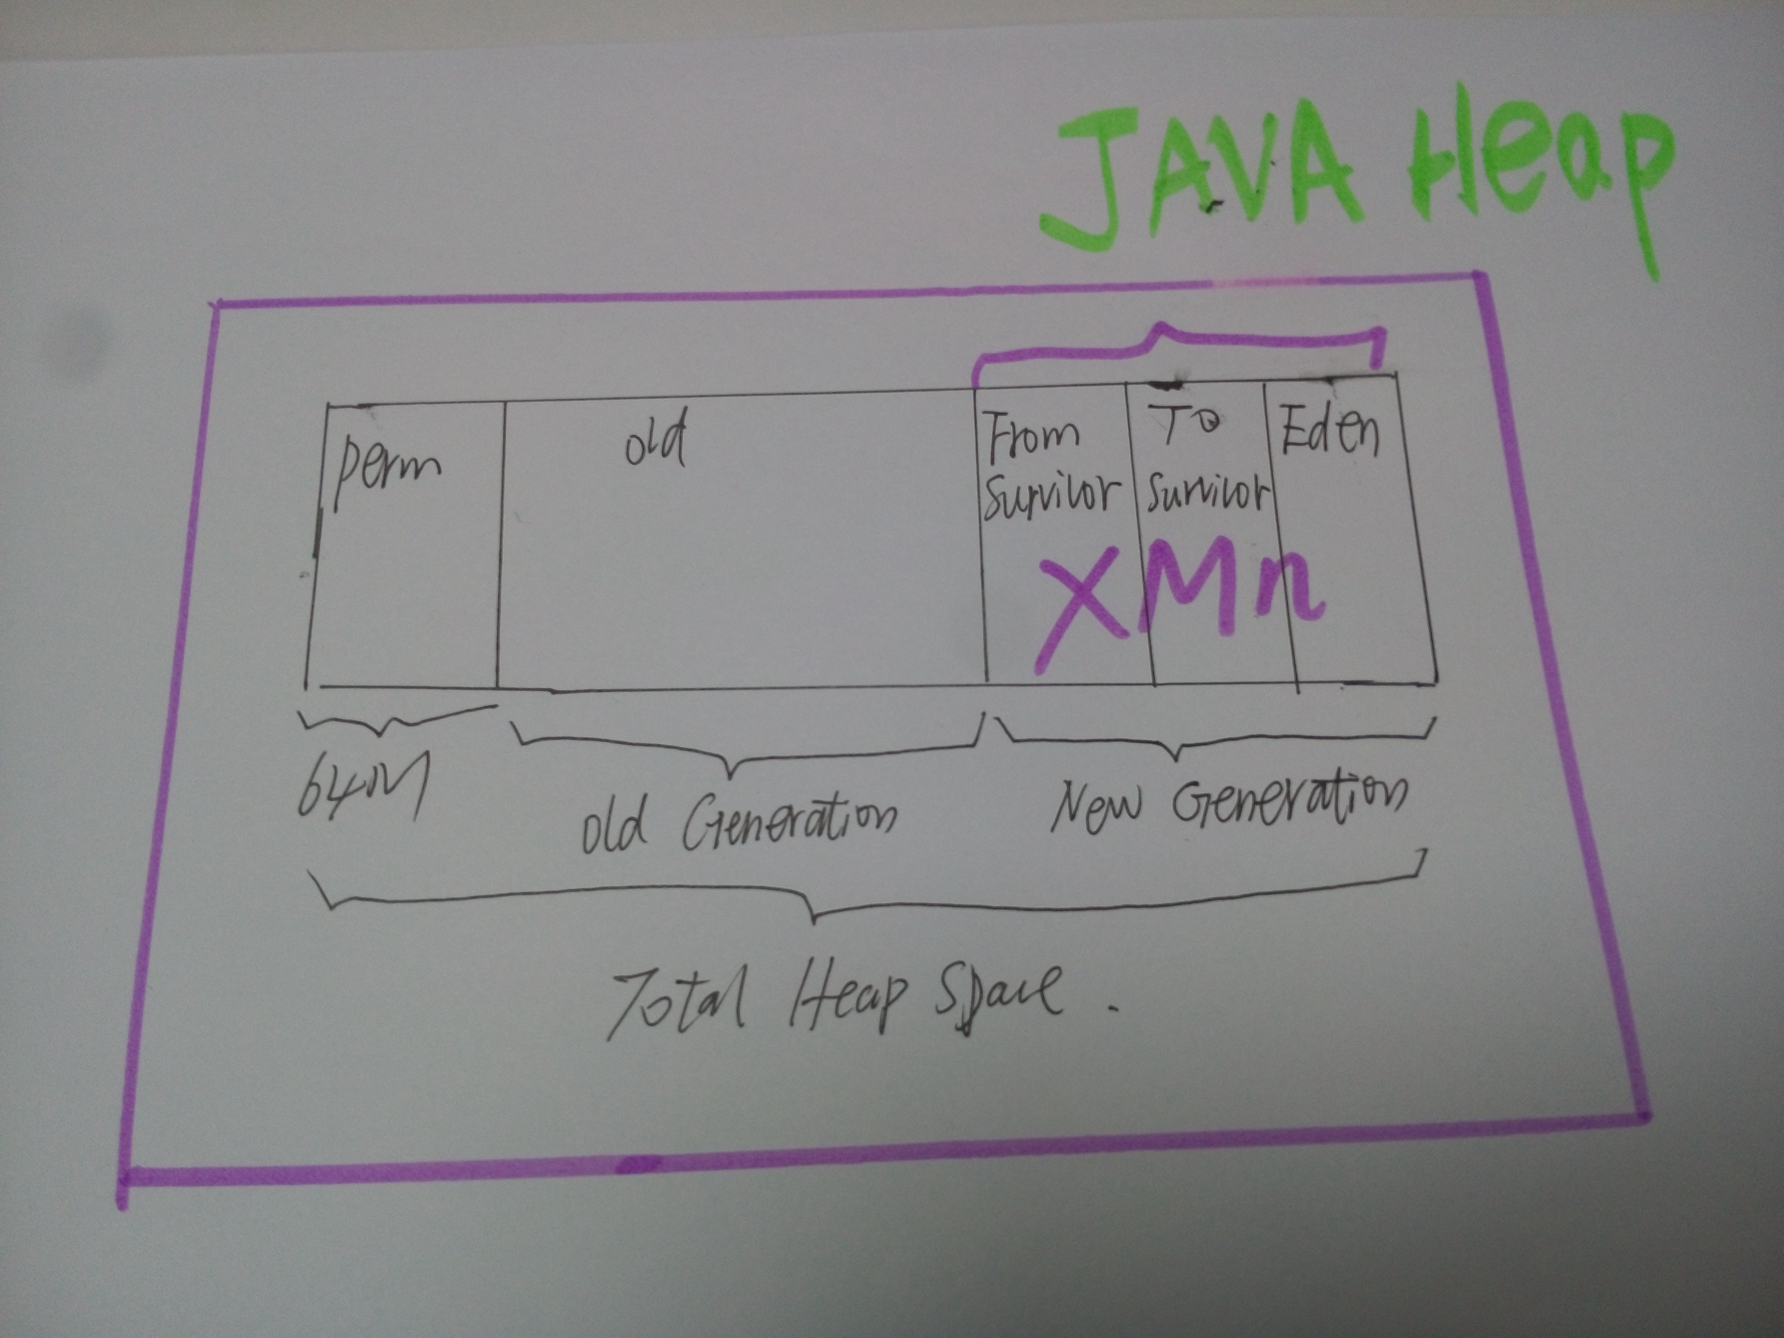 JAVA Heap
perm
old
From
Survivor
To
Survivor
Eden
XMn
64M
old Generation
New Generation
Total Heap Space.